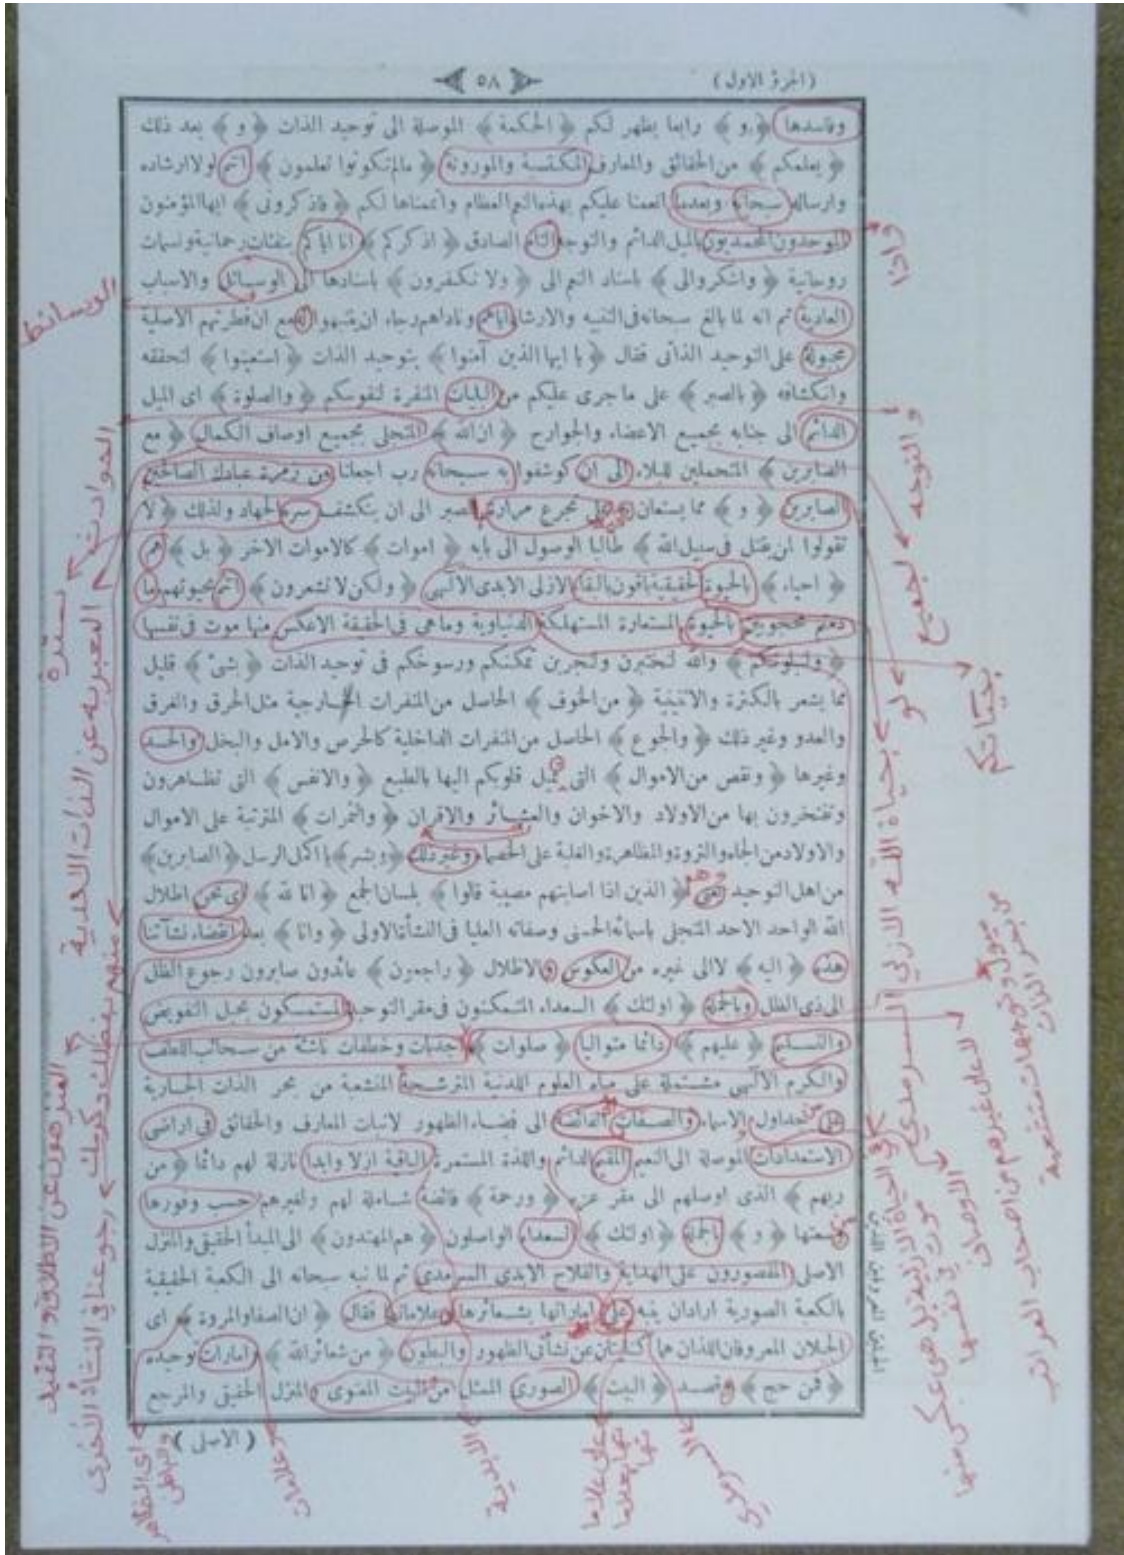 (الجزؤ الاول)
٥٨
وفاسدها ﴿ و ﴾ رابعا يظهر لكم ﴿ الحكمة ﴾ الموصلة الى توحيد الذات ﴿ و ﴾ بعد ذلك
﴿ يعلمكم ﴾ من الحقائق والمعارف المكتسبة والموروثة ﴿ مالم تكونوا تعلمون ﴾ انتم لولا ارشاده
وارساله سبحانه وبعدما انعمنا عليكم بهذه النعم العظام واتممناها لكم ﴿ فاذكرونى ﴾ ايها المؤمنون
الموحدون المحمديون بالميل الدائم والتوجه التام الصادق ﴿ اذكركم ﴾ انا اياكم بنفثات رحمانية ونسمات
روحانية ﴿ واشكروالى ﴾ باسناد النعم الى ﴿ ولا تكفرون ﴾ باسنادها الى الوسائل والاسباب
العادية ثم انه لما بالغ سبحانه فى التنبيه والارشاد اياهم وناداهم رجاء ان يتنبهوا مع ان فطرتهم الاصلية
مجبولة على التوحيد الذاتى فقال ﴿ يا ايها الذين آمنوا ﴾ بتوحيد الذات ﴿ استعينوا ﴾ لتحققه
وانكشافه ﴿ بالصبر ﴾ على ما جرى عليكم من البليات المنفرة لنفوسكم ﴿ والصلوة ﴾ اى الميل
الدائم الى جنابه بجميع الاعضاء والجوارح ﴿ ان الله ﴾ المتجلى بجميع اوصاف الكمال ﴿ مع
الصابرين ﴾ المتحملين للبلاء الى ان كوشفوا به سبحانه رب اجعلنا من زمرة عبادك الصالحين
الصابرين ﴿ و ﴾ مما يستعان به على تجرع مرارة الصبر الى ان ينكشف سره الجهاد ولذلك ﴿ لا
تقولوا لمن يقتل فى سبيل الله ﴾ طالبا الوصول الى بابه ﴿ اموات ﴾ كالاموات الاخر ﴿ بل ﴾ هم
﴿ احياء ﴾ بالحيوة الحقيقية باقون بالبقاء الازلى الابدى الالهى ﴿ ولكن لا تشعرون ﴾ انتم بحيوتهم ما
دمتم محجوبين بالحيوة المستعارة المستهلكة الدنياوية وماهى فى الحقيقة الاعكس منها موت فى نفسها
﴿ ولنبلونكم ﴾ والله لنختبرن ولنجربن تمكنكم ورسوخكم فى توحيد الذات ﴿ بشئ ﴾ قليل
مما يشعر بالكثرة والاثنينية ﴿ من الخوف ﴾ الحاصل من المنفرات الخارجية مثل الحرق والغرق
والعدو وغير ذلك ﴿ والجوع ﴾ الحاصل من المنفرات الداخلية كالحرص والامل والبخل والحسد
وغيرها ﴿ ونقص من الاموال ﴾ التى تميل قلوبكم اليها بالطبع ﴿ والانفس ﴾ التى تظاهرون
وتفتخرون بها من الاولاد والاخوان والعشائر والاقران ﴿ والثمرات ﴾ المترتبة على الاموال
والاولاد من الجاه والثروة والمظاهرة والغلبة على الخصماء وغير ذلك ﴿ وبشر ﴾ يا اكمل الرسل ﴿ الصابرين ﴾
من اهل التوحيد ﴿ الذين اذا اصابتهم مصيبة قالوا ﴾ بلسان الجمع ﴿ انا لله ﴾ اى نحن اظلال
الله الواحد الاحد المتجلى باسمائه الحسنى وصفاته العليا فى النشأة الاولى ﴿ وانا ﴾ بعد انقضاء نشأتنا
هذه ﴿ اليه ﴾ لا الى غيره من العكوس والاظلال ﴿ راجعون ﴾ عائدون صابرون رجوع الظل
الى ذى الظل وبالجملة ﴿ اولئك ﴾ السعداء المتمكنون فى مقر التوحيد المستمسكون بحبل التفويض
والتسليم ﴿ عليهم ﴾ دائما متواليا ﴿ صلوات ﴾ جذبات وخطفات ناشئة من سحائب اللطف
والكرم الالهى مشتملة على مياه العلوم اللدنية المترشحة المنشعبة من بحر الذات الجارية
من جداول الاسماء والصفات الفائضة الى فضاء الظهور لانبات المعارف والحقائق فى اراضى
الاستعدادات الموصلة الى النعيم المقيم الدائم واللذة المستمرة الباقية ازلا وابدا نازلة لهم دائما ﴿ من
ربهم ﴾ الذى اوصلهم الى مقر عزه ﴿ ورحمة ﴾ فائضة شاملة لهم ولغيرهم حسب وفورها
وسعتها ﴿ و ﴾ بالجملة ﴿ اولئك ﴾ السعداء الواصلون ﴿ هم المهتدون ﴾ الى المبدأ الحقيقى والمنزل
الاصلى المقصورون على الهداية والفلاح الابدى السرمدى ثم لما نبه سبحانه الى الكعبة الحقيقية
بالكعبة الصورية اراد ان ينبه على اماراتها بشعائرها وعلاماتها فقال ﴿ ان الصفا والمروة ﴾ اى
الجبلان المعروفان اللذان هما كنايتان عن نشأتى الظهور والبطون ﴿ من شعائر الله ﴾ وامارات توحيده
﴿ فمن حج ﴾ وقصد ﴿ البيت ﴾ الصورى الممثل من البيت المعنوى والمنزل الحقيقى والمرجع
( الاصلى )
وارنا
الوسائط
والتوجه
لجميع
الحوادث
بحياتكم
بحياة الله الازلي السرمدي
المعبر به عن الذات الاحدية
المنزهون عن الاطلاق والتقيد
رجوعنا في النشأة الاخرى
لا على غيرهم من اصحاب المراتب
من بحر الذات
الاوصاف
الابدية
السرمدي
وعلامات
اى الظاهر
والباطن